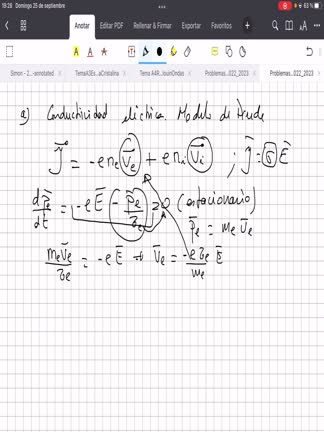 19:28 Domingo 25 de septiembre
63 %
Anotar Editar PDF Rellenar & Firmar Exportar Favoritos
Simon - 2...-annotated TemaA3Es...aCristalina TemaA4R...louinOndas Problemas...022_2023 Problemas...022_2023
a) Conductividad eléctrica. Modelo de Drude
J⃗ = -e nₑ v⃗ₑ + e nᵢ v⃗ᵢ ; J⃗ = σ E⃗
dp̄ₑ/dt = -e Ē - p̄ₑ/τₑ = 0 (estacionario)
p̄ₑ = mₑ v̄ₑ
mₑ v̄ₑ/τₑ = -e Ē → v̄ₑ = -e τₑ/mₑ Ē